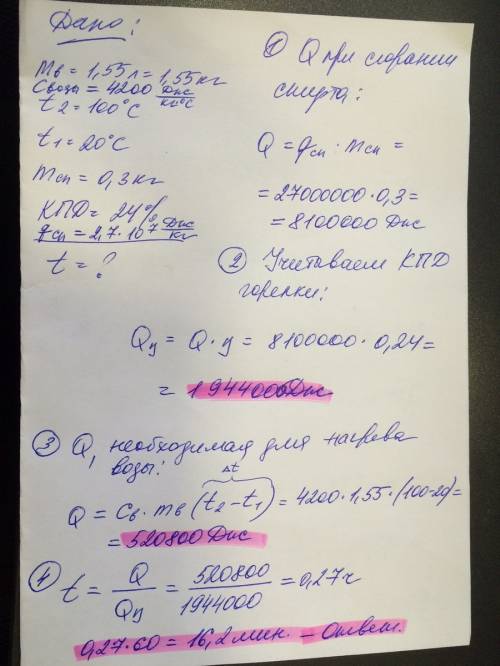 Дано:
Mв = 1,55 л = 1,55 кг
Cводы = 4200 Дж/кг°С
t2 = 100°C
t1 = 20°C
mсп = 0,3 кг
КПД = 24%
qсп = 2,7·10⁷ Дж/кг
t = ?
① Q при сгорании
спирта:
Q = qсп · mсп =
= 27000000·0,3 =
= 8100000 Дж
② Учитываем КПД
горелки:
Qц = Q·y = 8100000·0,24 =
= 1944000 Дж
③ Q, необходимая для нагрева
воды:
Δt
Q = Cв·mв (t2 – t1) = 4200·1,55·(100-20) =
= 520800 Дж
④ t = Q/Qц = 520800/1944000 = 0,27 ч
0,27·60 = 16,2 мин. – Ответ.